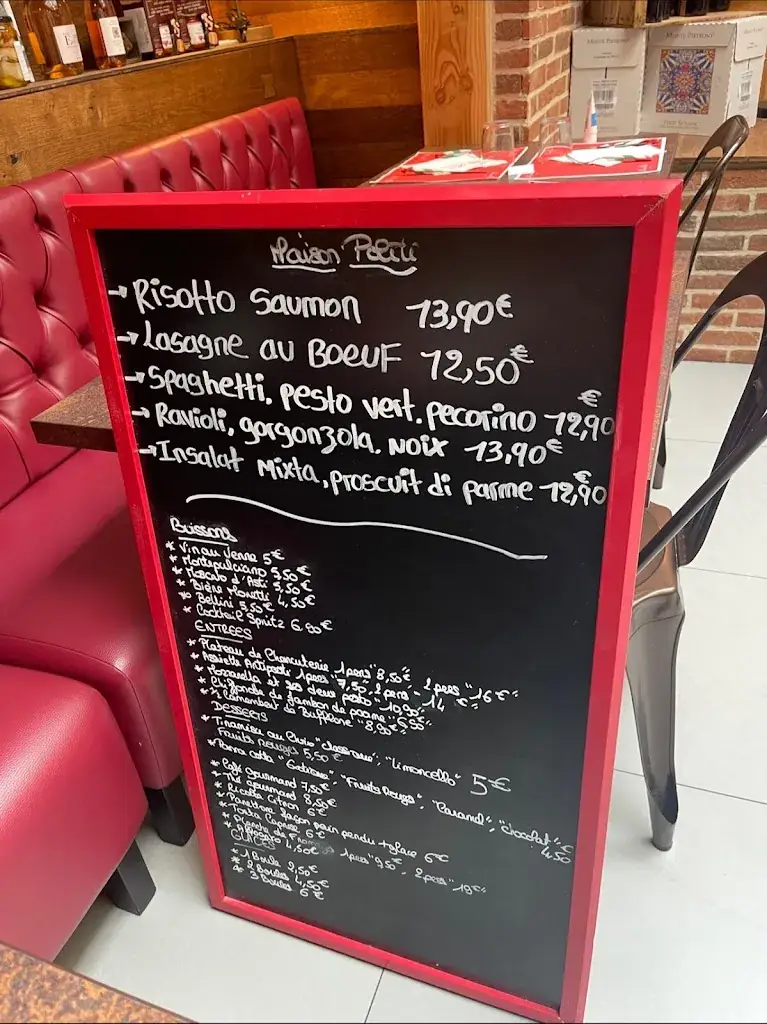 Maison Politi
→ Risotto saumon 13,90€
→ Lasagne au Boeuf 12,50€
→ Spaghetti, pesto vert, pecorino 12,90€
→ Ravioli, gorgonzola, noix 13,90€
→ Insalat mixta, proscuit di parme 12,90€
Boissons
* Vin au verre 5€
* Montepulciano 5,50€
* Moscato d'Asti 5,50€
* Bière Moretti 4,50€
* Bellini 5,50€
* Cocktail Spritz 6.90€
ENTREES
* Plateau de Charcuterie 1 pers "8,50€ - 2 pers "16€"
* Assiette Antipasti 1 pers "7,50", 2 pers - 14€"
* Mozzarella et ses deux pesto "10,90"
* Chiffonade de Jambon de parme "6,95"
* ½ Camembert di Bufflone "8,90€"
DESSERTS
* Tiramisu au choix "classique", "Limoncello" 5€
Fruits Rouges 5,50€
* Panna cotta "Fruits Rouges", "Caramel", "chocolat" 4,50€
* Café gourmand 7,50€
* Thé gourmand 8,50€
* Ricotta Citron 6€
* Panettone façon pain perdu + glace 6€
* Torta Caprese 6€
* Planche de 1 pers "9,50" - 2 pers "19€"
* Affogato 4,50€
GLACES
* 1 Boule 2,50€
* 2 Boules 4,50€
* 3 Boules 6€